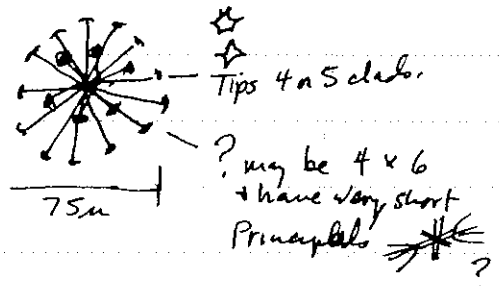 Tips 4 or 5 clads.
? may be 4 x 6
+ have very short
Principals
?
75u